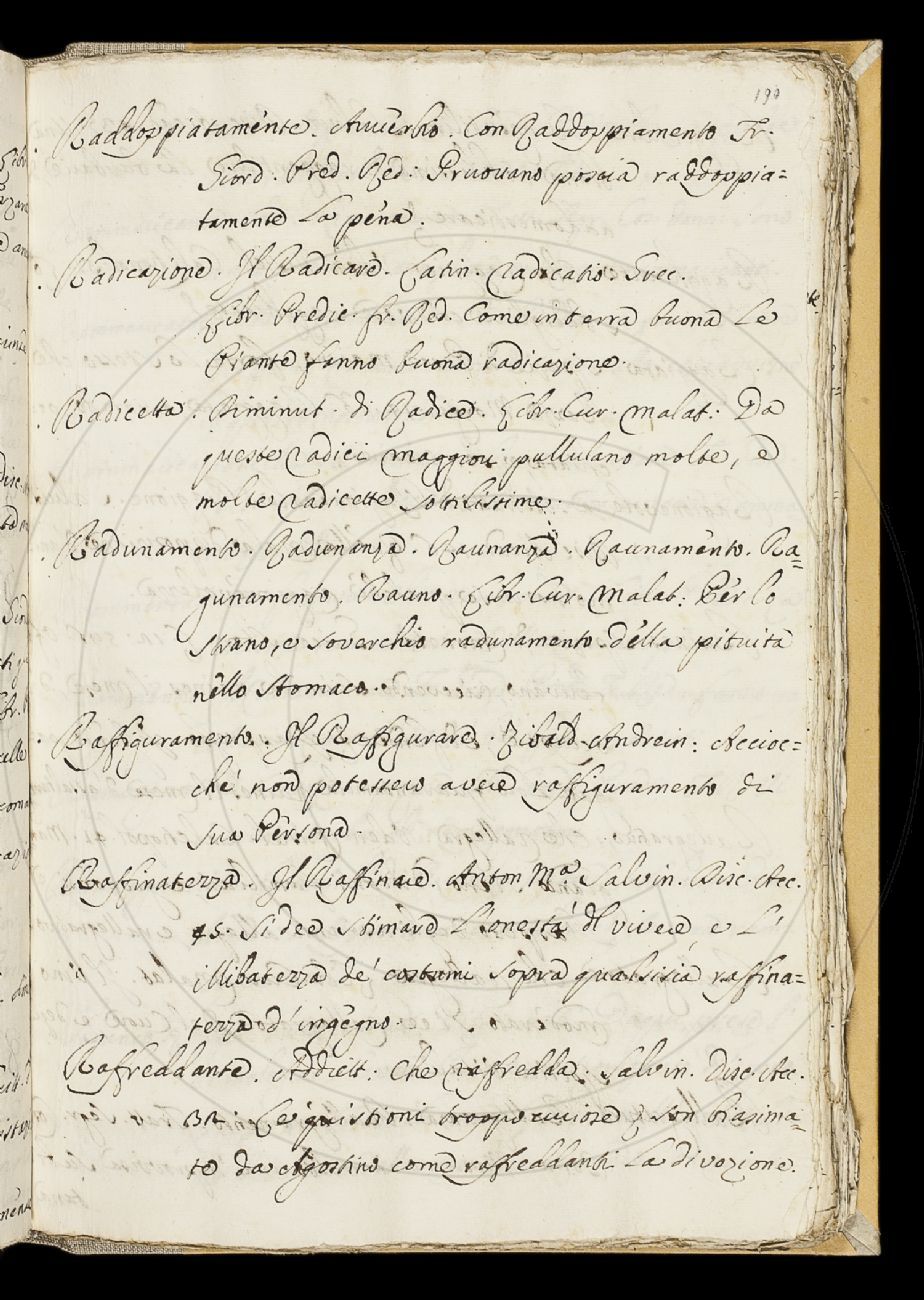 Raddoppiatamente. Avverbio. Con Raddoppiamento Fr.
Giord. Pred. Red: Pruovano poscia raddoppia=
tamente la pena.
Radicazione. Il Radicare. Latin. radicatio. Grec.
Libr. Predic. fr. Red. Come in terra buona le
Piante fanno buona radicazione.
Radicetta. Diminut. di Radice. Libr. Cur. malat: Da
queste radici maggiori pullulano molte, e
molte radicette sottilissime.
Radunamento. Radunanza. Raunanza. Raunamento. Ra=
gunamento. Rauno. Libr. Cur. Malat: Per lo
strano, e soverchio radunamento della pituita
nello stomaco.
Raffiguramento. Il Raffigurare. Zibald. Andrein: Accioc=
ché non potessero avere raffiguramento di
sua Persona.
Raffinatezza. Il Raffinare. Anton Mª. Salvin. Disc. Acc.
45. Si dee stimare l'onestá dl vivere e l'
illibatezza de' costumi sopra qualsisia raffina=
tezza d'ingegno.
Raffreddante. Addiett: Che raffredda. Salvin. Disc. Acc.
32. Le quistioni troppo curiose son biasima=
te da Agostino come raffreddanti la divozione.